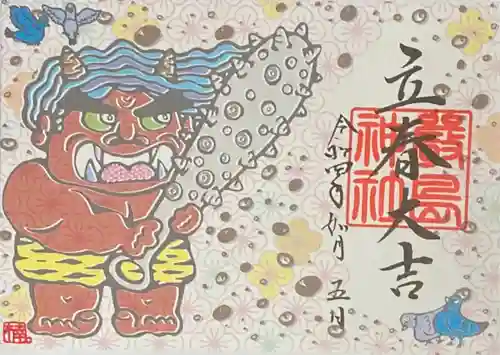 立春大吉
嚴島神社
令和四年如月五日